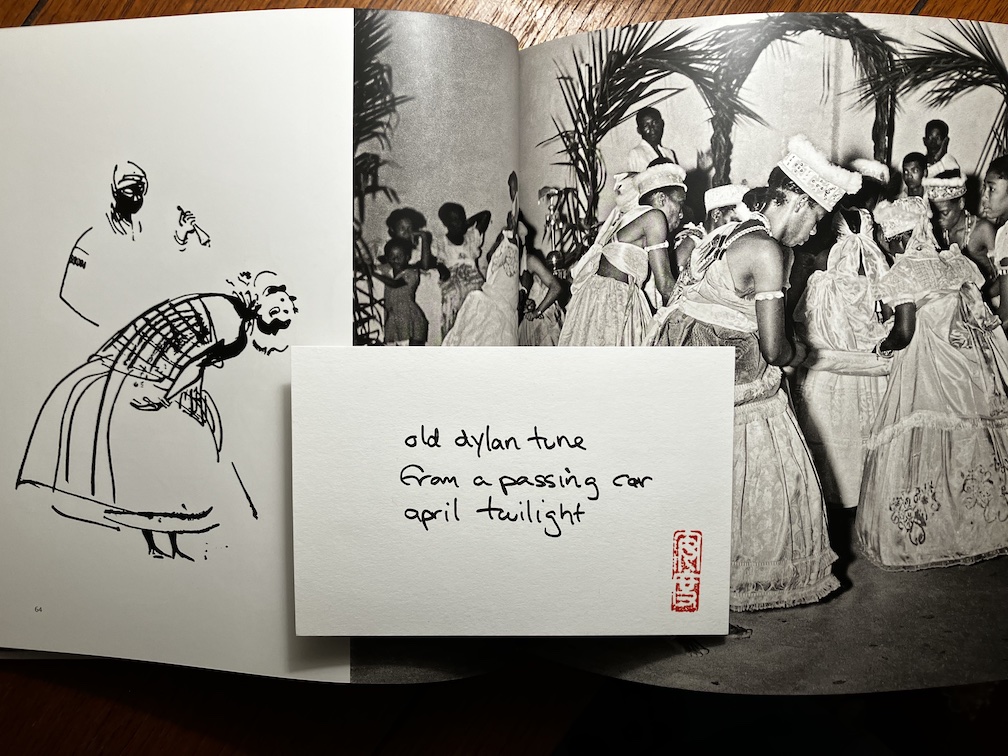 64
old dylan tune
from a passing car
april twilight